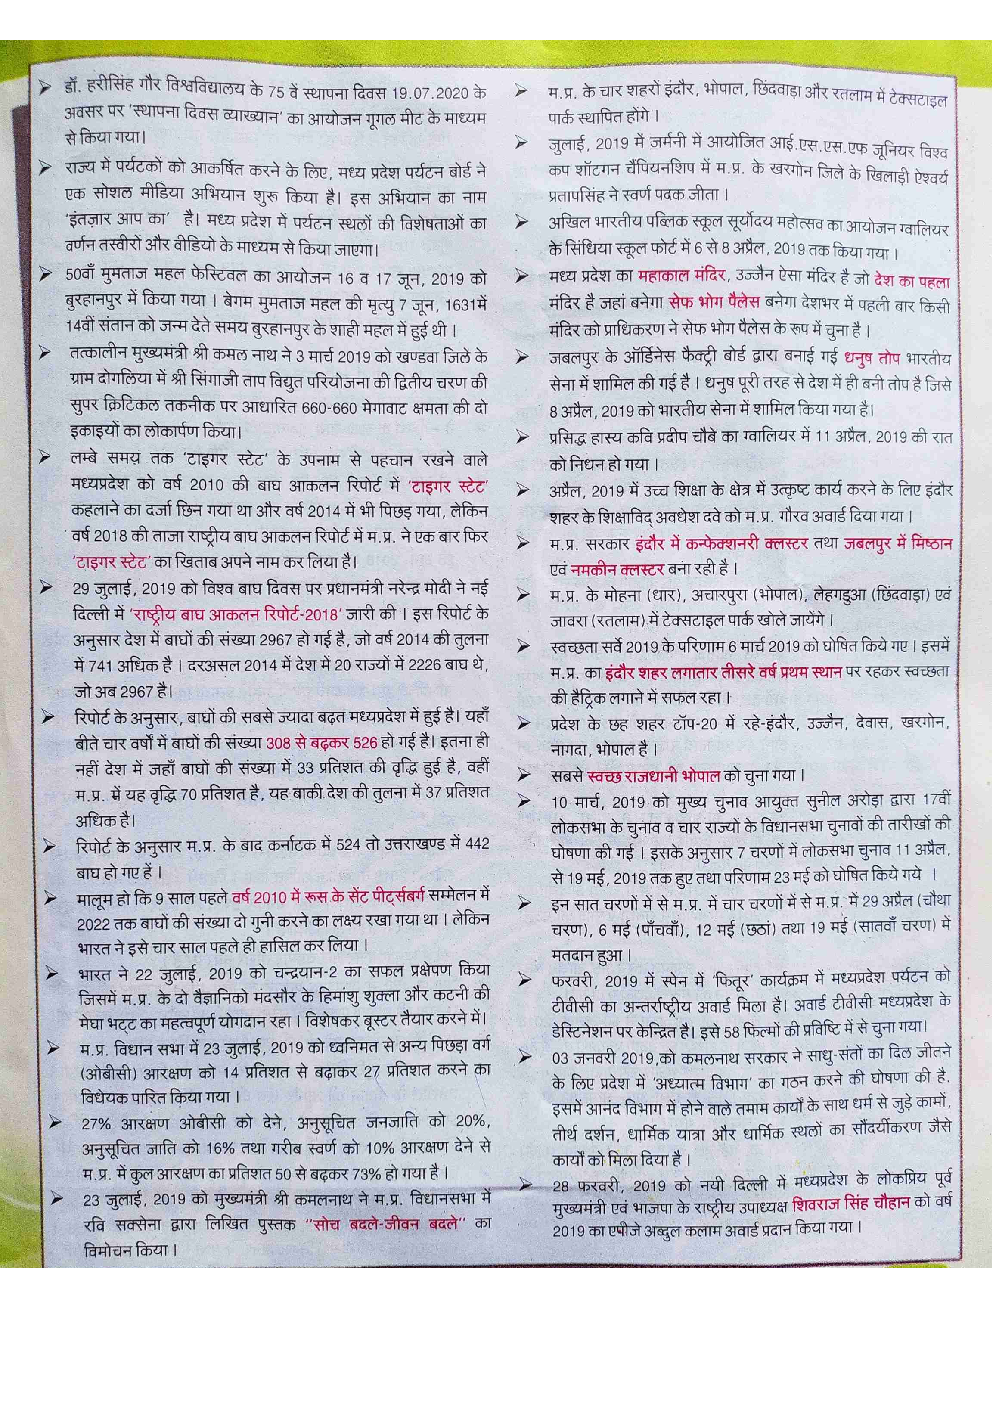 ➢ डॉ. हरीसिंह गौर विश्वविद्यालय के 75 वें स्थापना दिवस 19.07.2020 के
अवसर पर 'स्थापना दिवस व्याख्यान' का आयोजन गूगल मीट के माध्यम
से किया गया।
➢ राज्य में पर्यटकों को आकर्षित करने के लिए, मध्य प्रदेश पर्यटन बोर्ड ने
एक सोशल मीडिया अभियान शुरू किया है। इस अभियान का नाम
'इंतज़ार आप का' है। मध्य प्रदेश में पर्यटन स्थलों की विशेषताओं का
वर्णन तस्वीरों और वीडियो के माध्यम से किया जाएगा।
➢ 50वाँ मुमताज महल फेस्टिवल का आयोजन 16 व 17 जून, 2019 को
बुरहानपुर में किया गया । बेगम मुमताज महल की मृत्यु 7 जून, 1631में
14वीं संतान को जन्म देते समय बुरहानपुर के शाही महल में हुई थी ।
➢ तत्कालीन मुख्यमंत्री श्री कमल नाथ ने 3 मार्च 2019 को खण्डवा जिले के
ग्राम दोगलिया में श्री सिंगाजी ताप विद्युत परियोजना की द्वितीय चरण की
सुपर क्रिटिकल तकनीक पर आधारित 660-660 मेगावाट क्षमता की दो
इकाइयों का लोकार्पण किया।
➢ लम्बे समय तक 'टाइगर स्टेट' के उपनाम से पहचान रखने वाले
मध्यप्रदेश को वर्ष 2010 की बाघ आकलन रिपोर्ट में 'टाइगर स्टेट'
कहलाने का दर्जा छिन गया था और वर्ष 2014 में भी पिछड़ गया, लेकिन
वर्ष 2018 की ताजा राष्ट्रीय बाघ आकलन रिपोर्ट में म.प्र. ने एक बार फिर
'टाइगर स्टेट' का खिताब अपने नाम कर लिया है।
➢ 29 जुलाई, 2019 को विश्व बाघ दिवस पर प्रधानमंत्री नरेन्द्र मोदी ने नई
दिल्ली में 'राष्ट्रीय बाघ आकलन रिपोर्ट-2018' जारी की । इस रिपोर्ट के
अनुसार देश में बाघों की संख्या 2967 हो गई है, जो वर्ष 2014 की तुलना
में 741 अधिक है । दरअसल 2014 में देश में 20 राज्यों में 2226 बाघ थे,
जो अब 2967 है।
➢ रिपोर्ट के अनुसार, बाघों की सबसे ज्यादा बढ़त मध्यप्रदेश में हुई है। यहाँ
बीते चार वर्षों में बाघों की संख्या 308 से बढ़कर 526 हो गई है। इतना ही
नहीं देश में जहाँ बाघों की संख्या में 33 प्रतिशत की वृद्धि हुई है, वहीं
म.प्र. में यह वृद्धि 70 प्रतिशत है, यह बाकी देश की तुलना में 37 प्रतिशत
अधिक है।
➢ रिपोर्ट के अनुसार म.प्र. के बाद कर्नाटक में 524 तो उत्तराखण्ड में 442
बाघ हो गए हें ।
➢ मालूम हो कि 9 साल पहले वर्ष 2010 में रूस के सेंट पीटर्सबर्ग सम्मेलन में
2022 तक बाघों की संख्या दो गुनी करने का लक्ष्य रखा गया था । लेकिन
भारत ने इसे चार साल पहले ही हासिल कर लिया ।
➢ भारत ने 22 जुलाई, 2019 को चन्द्रयान-2 का सफल प्रक्षेपण किया
जिसमें म.प्र. के दो वैज्ञानिको मंदसौर के हिमांशु शुक्ला और कटनी की
मेघा भट्ट का महत्वपूर्ण योगदान रहा । विशेषकर बूस्टर तैयार करने में।
➢ म.प्र. विधान सभा में 23 जुलाई, 2019 को ध्वनिमत से अन्य पिछड़ा वर्ग
(ओबीसी) आरक्षण को 14 प्रतिशत से बढ़ाकर 27 प्रतिशत करने का
विधेयक पारित किया गया ।
➢ 27% आरक्षण ओबीसी को देने, अनुसूचित जनजाति को 20%,
अनुसूचित जाति को 16% तथा गरीब स्वर्ण को 10% आरक्षण देने से
म.प्र. में कुल आरक्षण का प्रतिशत 50 से बढ़कर 73% हो गया है ।
➢ 23 जुलाई, 2019 को मुख्यमंत्री श्री कमलनाथ ने म.प्र. विधानसभा में
रवि सक्सेना द्वारा लिखित पुस्तक "सोच बदले-जीवन बदले" का
विमोचन किया ।
➢ म.प्र. के चार शहरों इंदौर, भोपाल, छिंदवाड़ा और रतलाम में टेक्सटाइल
पार्क स्थापित होंगे ।
➢ जुलाई, 2019 में जर्मनी में आयोजित आई.एस.एस.एफ जूनियर विश्व
कप शॉटगन चैंपियनशिप में म.प्र. के खरगोन जिले के खिलाड़ी ऐश्वर्य
प्रतापसिंह ने स्वर्ण पदक जीता ।
➢ अखिल भारतीय पब्लिक स्कूल सूर्योदय महोत्सव का आयोजन ग्वालियर
के सिंधिया स्कूल फोर्ट में 6 से 8 अप्रैल, 2019 तक किया गया ।
➢ मध्य प्रदेश का महाकाल मंदिर, उज्जैन ऐसा मंदिर है जो देश का पहला
मंदिर है जहां बनेगा सेफ भोग पैलेस बनेगा देशभर में पहली बार किसी
मंदिर को प्राधिकरण ने सेफ भोग पैलेस के रूप में चुना है ।
➢ जबलपुर के ऑर्डिनेंस फैक्ट्री बोर्ड द्वारा बनाई गई धनुष तोप भारतीय
सेना में शामिल की गई है । धनुष पूरी तरह से देश में ही बनी तोप है जिसे
8 अप्रैल, 2019 को भारतीय सेना में शामिल किया गया है।
➢ प्रसिद्ध हास्य कवि प्रदीप चौबे का ग्वालियर में 11 अप्रैल, 2019 की रात
को निधन हो गया ।
➢ अप्रैल, 2019 में उच्च शिक्षा के क्षेत्र में उत्कृष्ट कार्य करने के लिए इंदौर
शहर के शिक्षाविद् अवधेश दवे को म.प्र. गौरव अवार्ड दिया गया ।
➢ म.प्र. सरकार इंदौर में कन्फेक्शनरी क्लस्टर तथा जबलपुर में मिष्ठान
एवं नमकीन क्लस्टर बना रही है ।
➢ म.प्र. के मोहना (धार), अचारपुरा (भोपाल), लेहगडुआ (छिंदवाड़ा) एवं
जावरा (रतलाम) में टेक्सटाइल पार्क खोले जायेंगे ।
➢ स्वच्छता सर्वे 2019 के परिणाम 6 मार्च 2019 को घोषित किये गए । इसमें
म.प्र. का इंदौर शहर लगातार तीसरे वर्ष प्रथम स्थान पर रहकर स्वच्छता
की हैट्रिक लगाने में सफल रहा ।
➢ प्रदेश के छह शहर टॉप-20 में रहे-इंदौर, उज्जैन, देवास, खरगोन,
नागदा, भोपाल है ।
➢ सबसे स्वच्छ राजधानी भोपाल को चुना गया ।
➢ 10 मार्च, 2019 को मुख्य चुनाव आयुक्त सुनील अरोड़ा द्वारा 17वीं
लोकसभा के चुनाव व चार राज्यों के विधानसभा चुनावों की तारीखों की
घोषणा की गई । इसके अनुसार 7 चरणों में लोकसभा चुनाव 11 अप्रैल,
से 19 मई, 2019 तक हुए तथा परिणाम 23 मई को घोषित किये गये ।
➢ इन सात चरणों में से म.प्र. में चार चरणों में से म.प्र. में 29 अप्रैल (चौथा
चरण), 6 मई (पाँचवाँ), 12 मई (छठां) तथा 19 मई (सातवाँ चरण) में
मतदान हुआ ।
➢ फरवरी, 2019 में स्पेन में 'फितूर' कार्यक्रम में मध्यप्रदेश पर्यटन को
टीवीसी का अन्तर्राष्ट्रीय अवार्ड मिला है। अवार्ड टीवीसी मध्यप्रदेश के
डेस्टिनेशन पर केन्द्रित है। इसे 58 फिल्मों की प्रविष्टि में से चुना गया।
➢ 03 जनवरी 2019,को कमलनाथ सरकार ने साधु-संतों का दिल जीतने
के लिए प्रदेश में 'अध्यात्म विभाग' का गठन करने की घोषणा की है.
इसमें आनंद विभाग में होने वाले तमाम कार्यों के साथ धर्म से जुड़े कामों,
तीर्थ दर्शन, धार्मिक यात्रा और धार्मिक स्थलों का सौंदर्यीकरण जैसे
कार्यों को मिला दिया है ।
➢ 28 फरवरी, 2019 को नयी दिल्ली में मध्यप्रदेश के लोकप्रिय पूर्व
मुख्यमंत्री एवं भाजपा के राष्ट्रीय उपाध्यक्ष शिवराज सिंह चौहान को वर्ष
2019 का एपीजे अब्दुल कलाम अवार्ड प्रदान किया गया ।